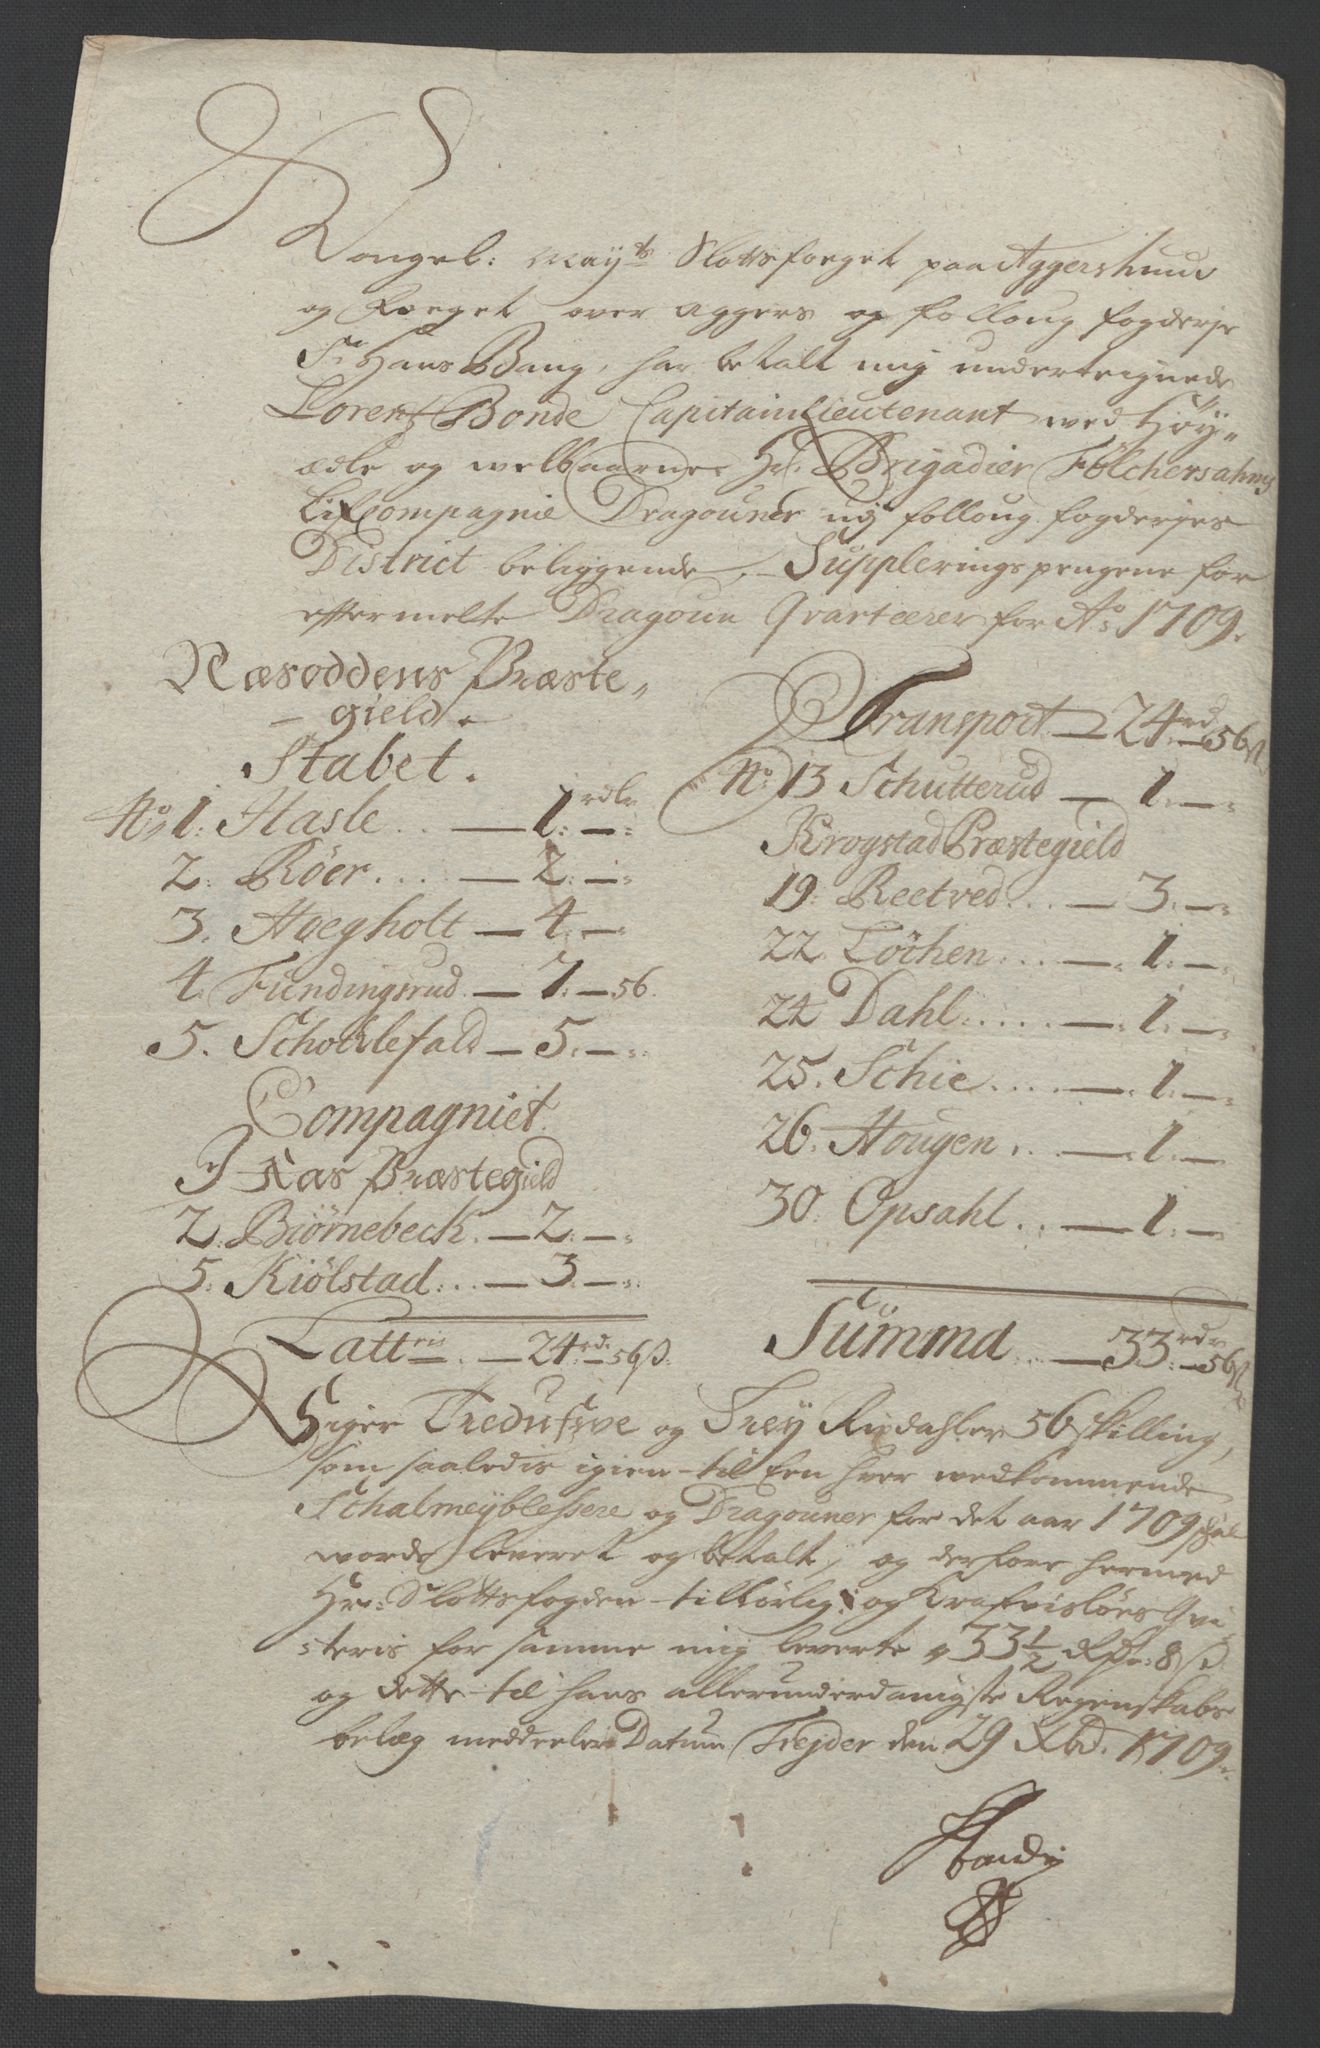 Kongel: May.ts Slottsfoeget paa Aggershuus
og Foeget over Aggers og Folloug fogderje
Sr Hans Bang, har betalt mig underteignede
Lorentz Bonde Capitain Lieutenant wed Høy-
ædle og welbaarne Hr. Brigadier Fölchersahms
Lif Compagnie Dragouner udj Folloug fogderjes
District beliggende, Suppleringspengene for
eftermelte Dragoun Qvarteerer for Ao 1709.
Næsoddens Præste-
gield.
Stabet.
No 1: Hasle .. — 1 rdlr: —:
2: Röer.... — 2: —:
3. Hoegholt — 4: —
4. Fundingsrud. — 7: — 56.
5. Schottlefald — 5: —:
Compagniet.
I Aas Præstegield
2: Biörnebeck. — 2: —:
5. Kiölstad:.. — 3: —:
Latteris. — 24 rd: — 56 ß.
Transport — 24 rd — 56 ß.
No: 13 Schutterud — 1: —:
Krogstad Præstegield
19: Reetved... — 3: —:
22. Töchen.... — 1: —:
24 Dahl..... — 1: —:
25. Schie.... — 1: —:
26. Hougen.. — 1: —
30. Opsahl... — 1: —
Summa.. — 33 rdr — 56 ß
Siger Tredufve og Trey Rixdahler 56 skilling,
som saaledis igien til Een hver wedkommende
Schalmeyblessere og Dragouner for det aar 1709 skal
worde leveret og betalt, og derfore hermed
Hr: Slottsfogden tilbörlig og Krafvislöes Qvi-
teris for samme mig leverte 33½ Rdr: 8 ß.
og dette til hans allerunderdanigste Regenskabs
belæg meddeeler Datum Trejder den 29 Xbr. 1709.